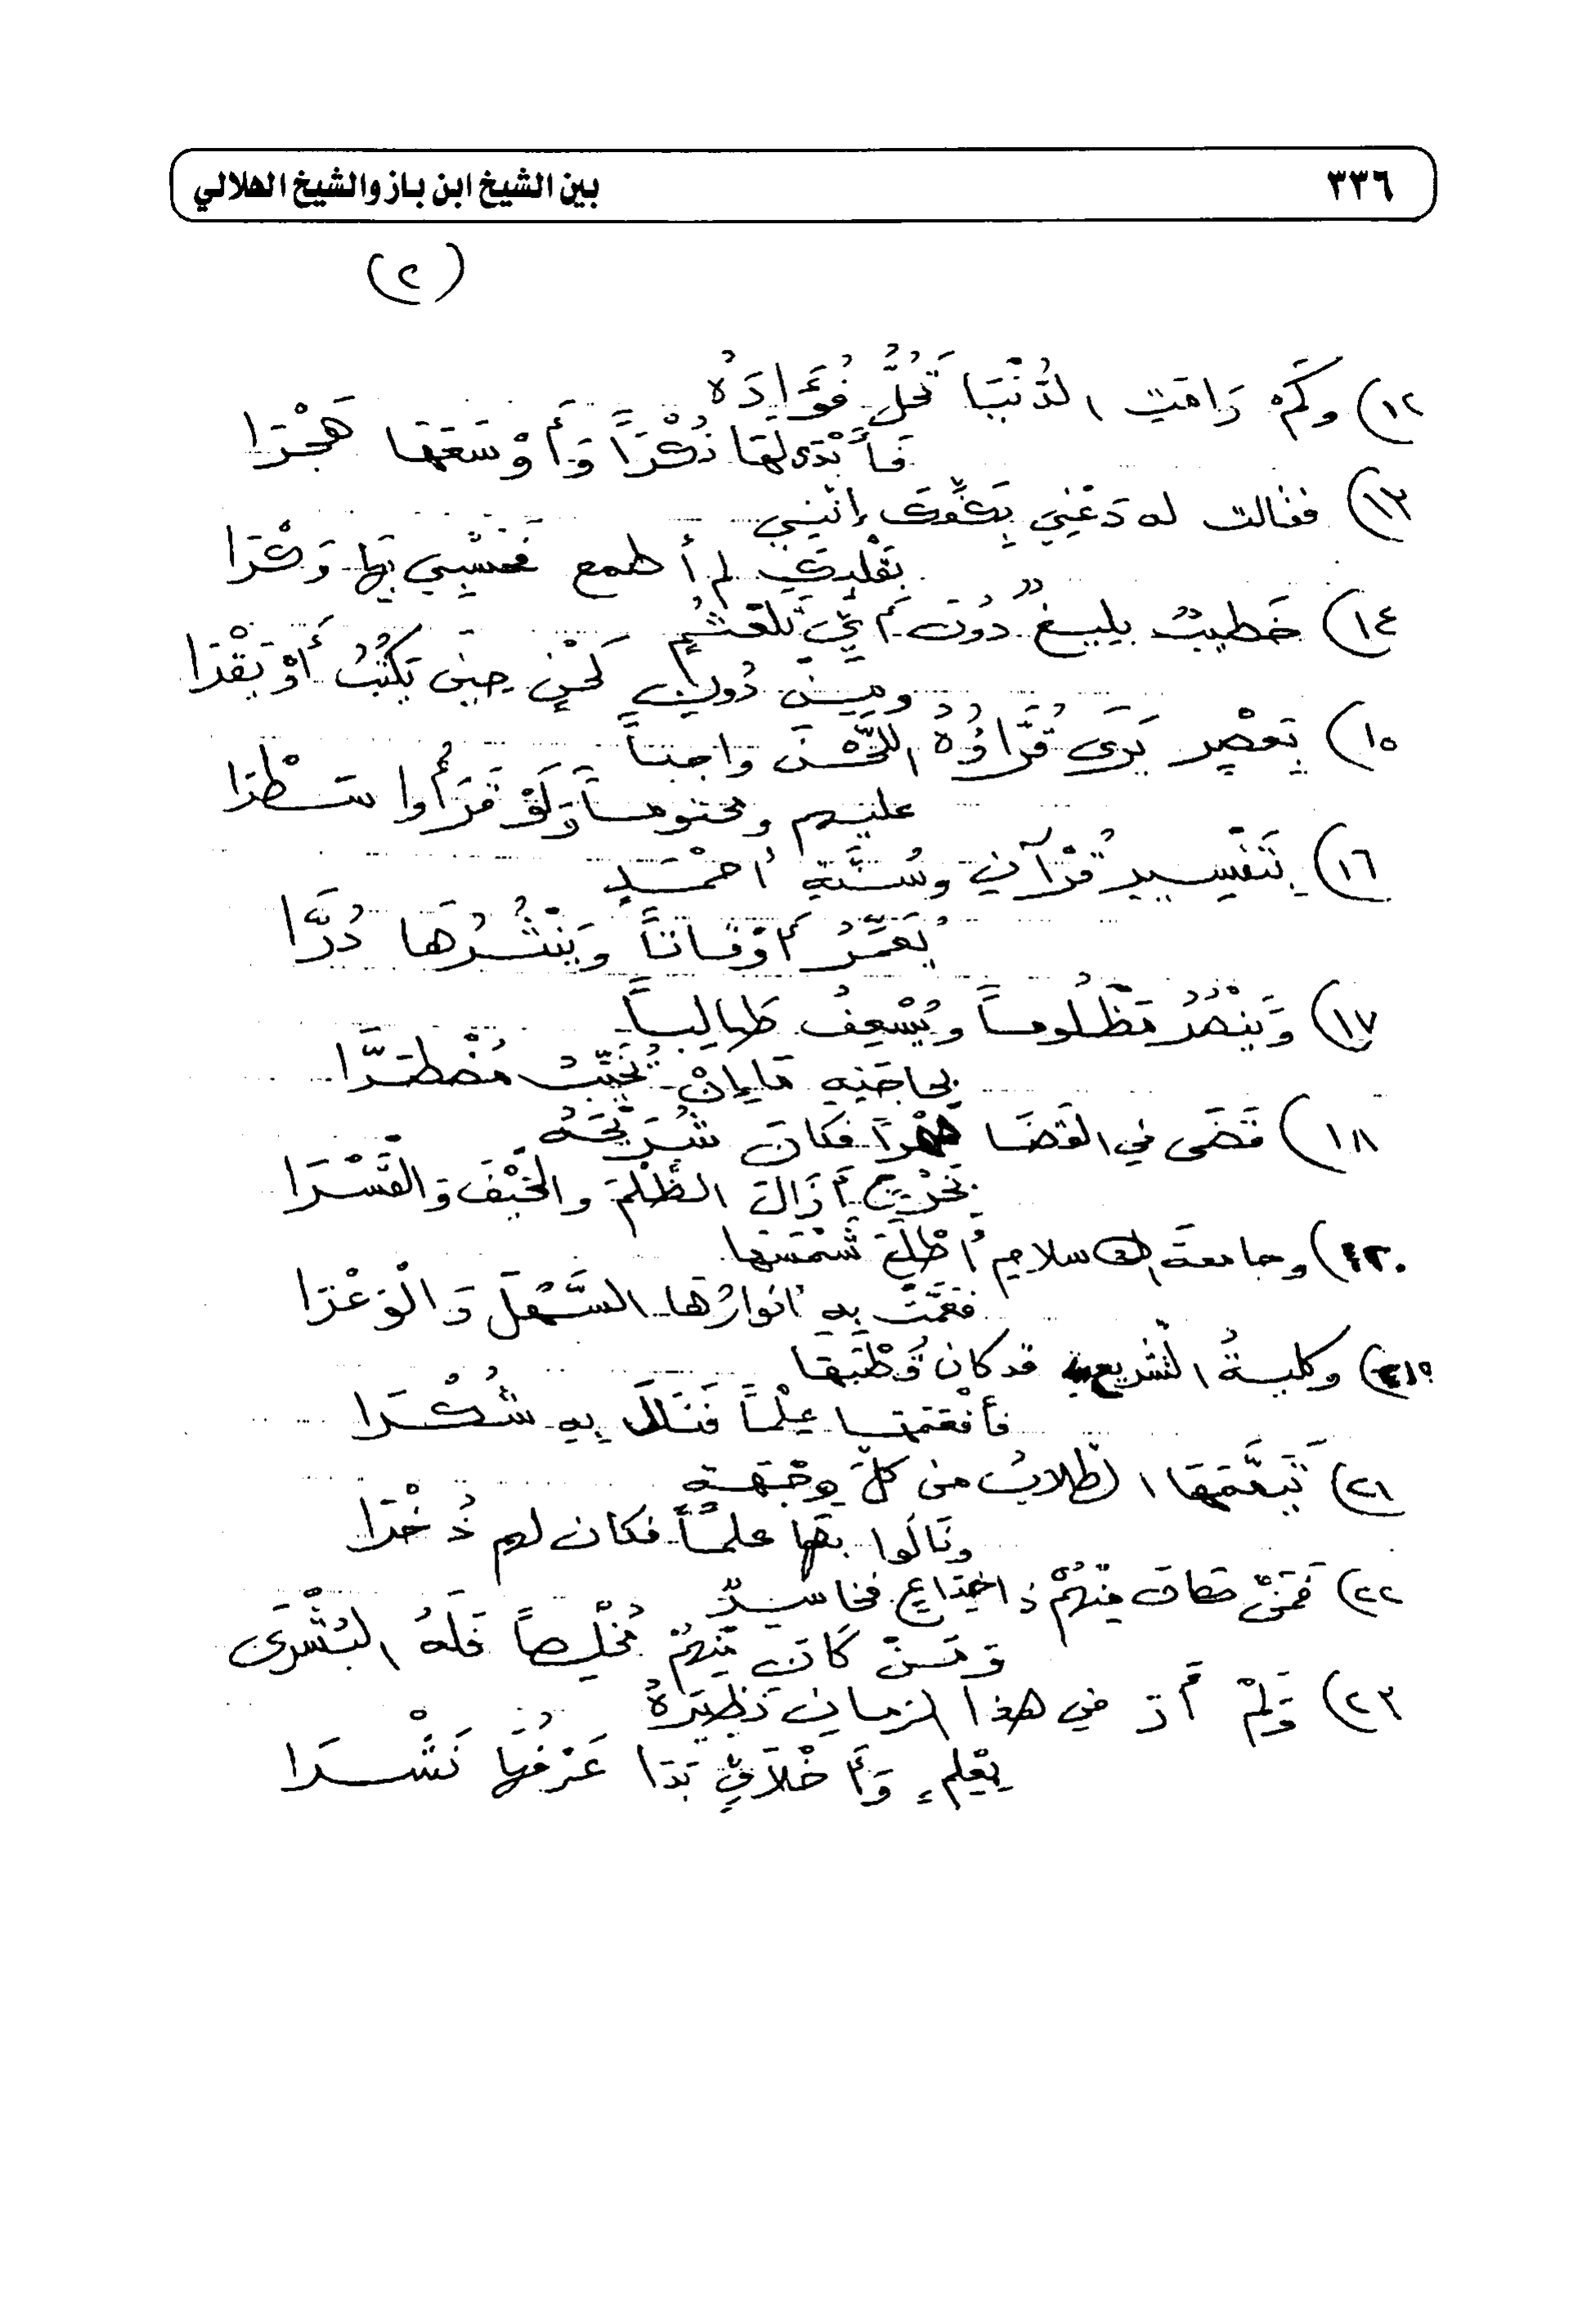 ٣٣٦
بين الشيخ ابن باز والشيخ الهلالي
(٢)
١٢) وَكَمْ رَامَتِ الدُّنْيَا تَحُلُّ فُؤَادَهُ
فَأَبْدَى لَهَا نُكْرًا وَأَوْسَعَهَا هَجْرَا
١٣) فقالت له دَعْنِي بِكَفِّكَ إِنَّنِي
بِقَلْبِكَ لم أطمع فَحَسْبِي بِهَا وَكْرَا
١٤) خَطِيبٌ بليغٌ دُونَ أَيِّ تَلَعْثُمٍ
ومِنْ دُونِ لَحْنٍ حِينَ يَكْتُبُ أَوْ يَقْرَا
١٥) بِعَصْرٍ يَرَى قُرَّاؤُهُ اللَّحْنَ واجباً
عليهم ومحتوماً وَلَوْ قَرَأُوا سَطْرَا
١٦) بِتَفْسِيرِ قُرْآنٍ وسُنَّةِ أحْمَدٍ
يُعَمِّرُ أَوْقَاتاً وَيَنْثُرُهَا دُرَّا
١٧) وَيَنْصُرُ مَظْلُوماً ويُسْعِفُ طَالِباً
بِحَاجَتِهِ مَا إِنْ يُخَيِّبُ مُضْطَرَّا
١٨) قَضَى في القَضَا فكانَ شُرَيْحَهُ
أَزَالَ الظُّلْمَ والْحَيْفَ وَالْقَسْرَا
٢٠) وجامعةَ الإسلامِ أَطْلَعَ شَمْسَهَا
فَعَمَّتْ بِهِ أنوارُهَا السَّهْلَ وَالْوَعْرَا
١٩) وكليةُ الشريعة قد كان قُطْبَهَا
فأفْعَمَهَا عِلْماً فَنَالَ بِهِ شُكْرَا
٢١) تَيَمَّمَهَا الطلابُ من كلِّ وِجْهَةٍ
ونَالُوا بِهَا علماً فكان لهم ذُخْرَا
٢٢) فَمَنْ كانَ مِنْهُمْ ذا خِدَاعٍ فخاسِرٌ
وَمَنْ كَانَ مِنْهُمْ مُخْلِصاً فَلَهُ الْبُشْرَى
٢٣) وَلَمْ أَرَ في هذا الزمانِ نَظِيرَهُ
بِعِلْمٍ وَأَخْلَاقٍ بَدَا عَرْفُهَا نَشْرَا